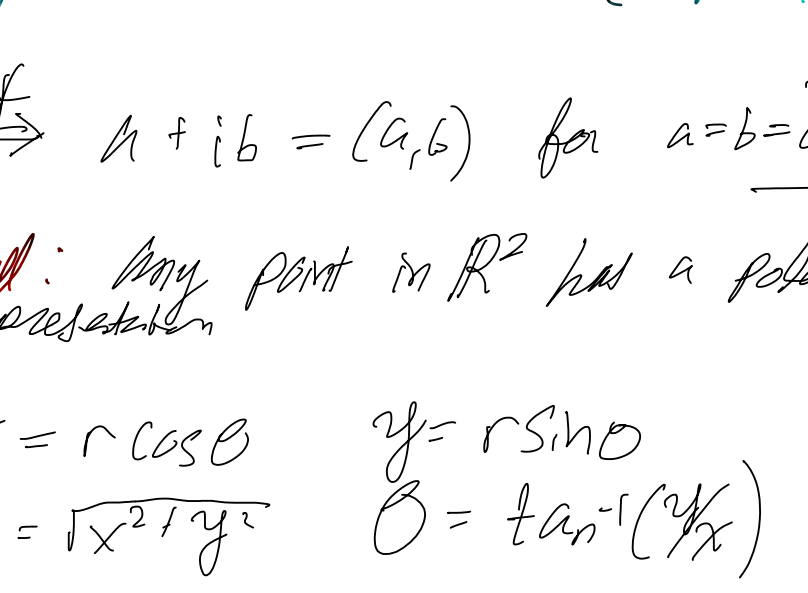 ⇒ a + ib = (a,b) for a=b=
: Any point in R² has a pola
presentation
= r cosθ y = r sinθ
= √x²+y² θ = tan⁻¹(y/x)